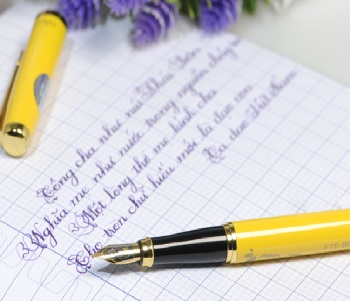 Công cha như núi Thái Sơn
Nghĩa mẹ như nước trong nguồn chảy ra
Một lòng thờ mẹ kính cha
Cho tròn chữ hiếu mới là đạo con
Ca dao Việt Nam